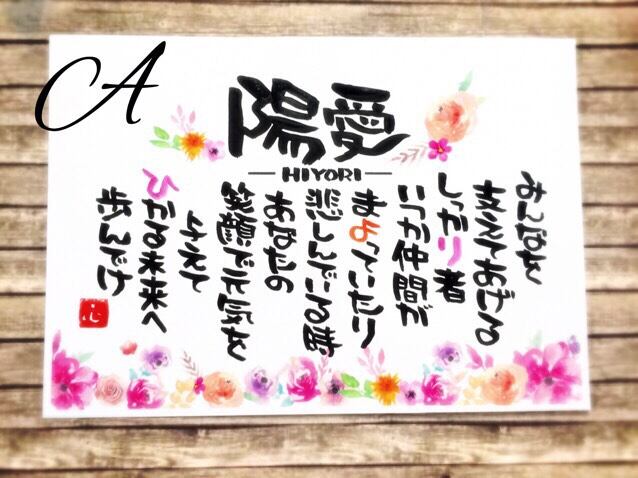 A
陽愛
HIYORI
みんなを
支えてあげる
しっかり者
いつか仲間が
まよっていたり
悲しんでいる時
あなたの
笑顔で元気を
与えて
ひかる未来へ
歩んでけ
心